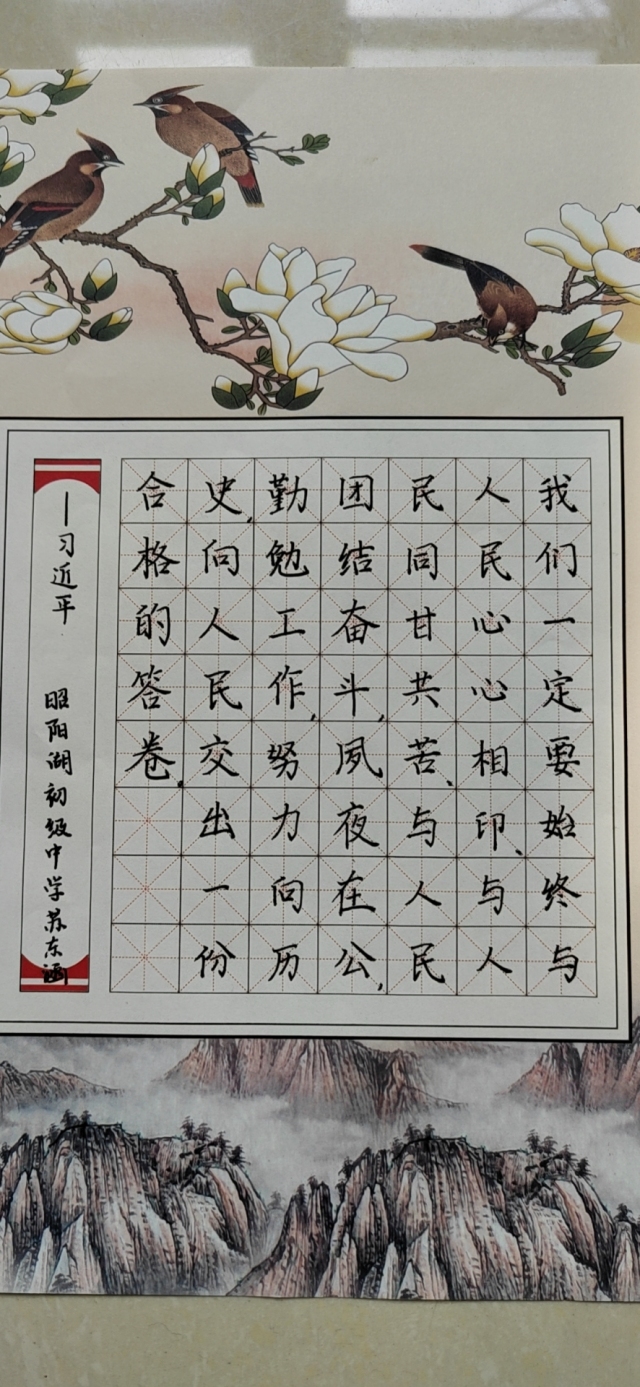 我们一定要始终与
人民心心相印、与人
民同甘共苦、与人民
团结奋斗,夙夜在公,
勤勉工作,努力向历
史,向人民交出一份
合格的答卷.
—习近平
昭阳湖初级中学苏东涵